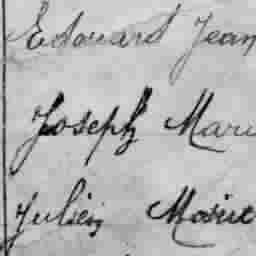 Edouard Jean
Joseph Marie
Julien Marie